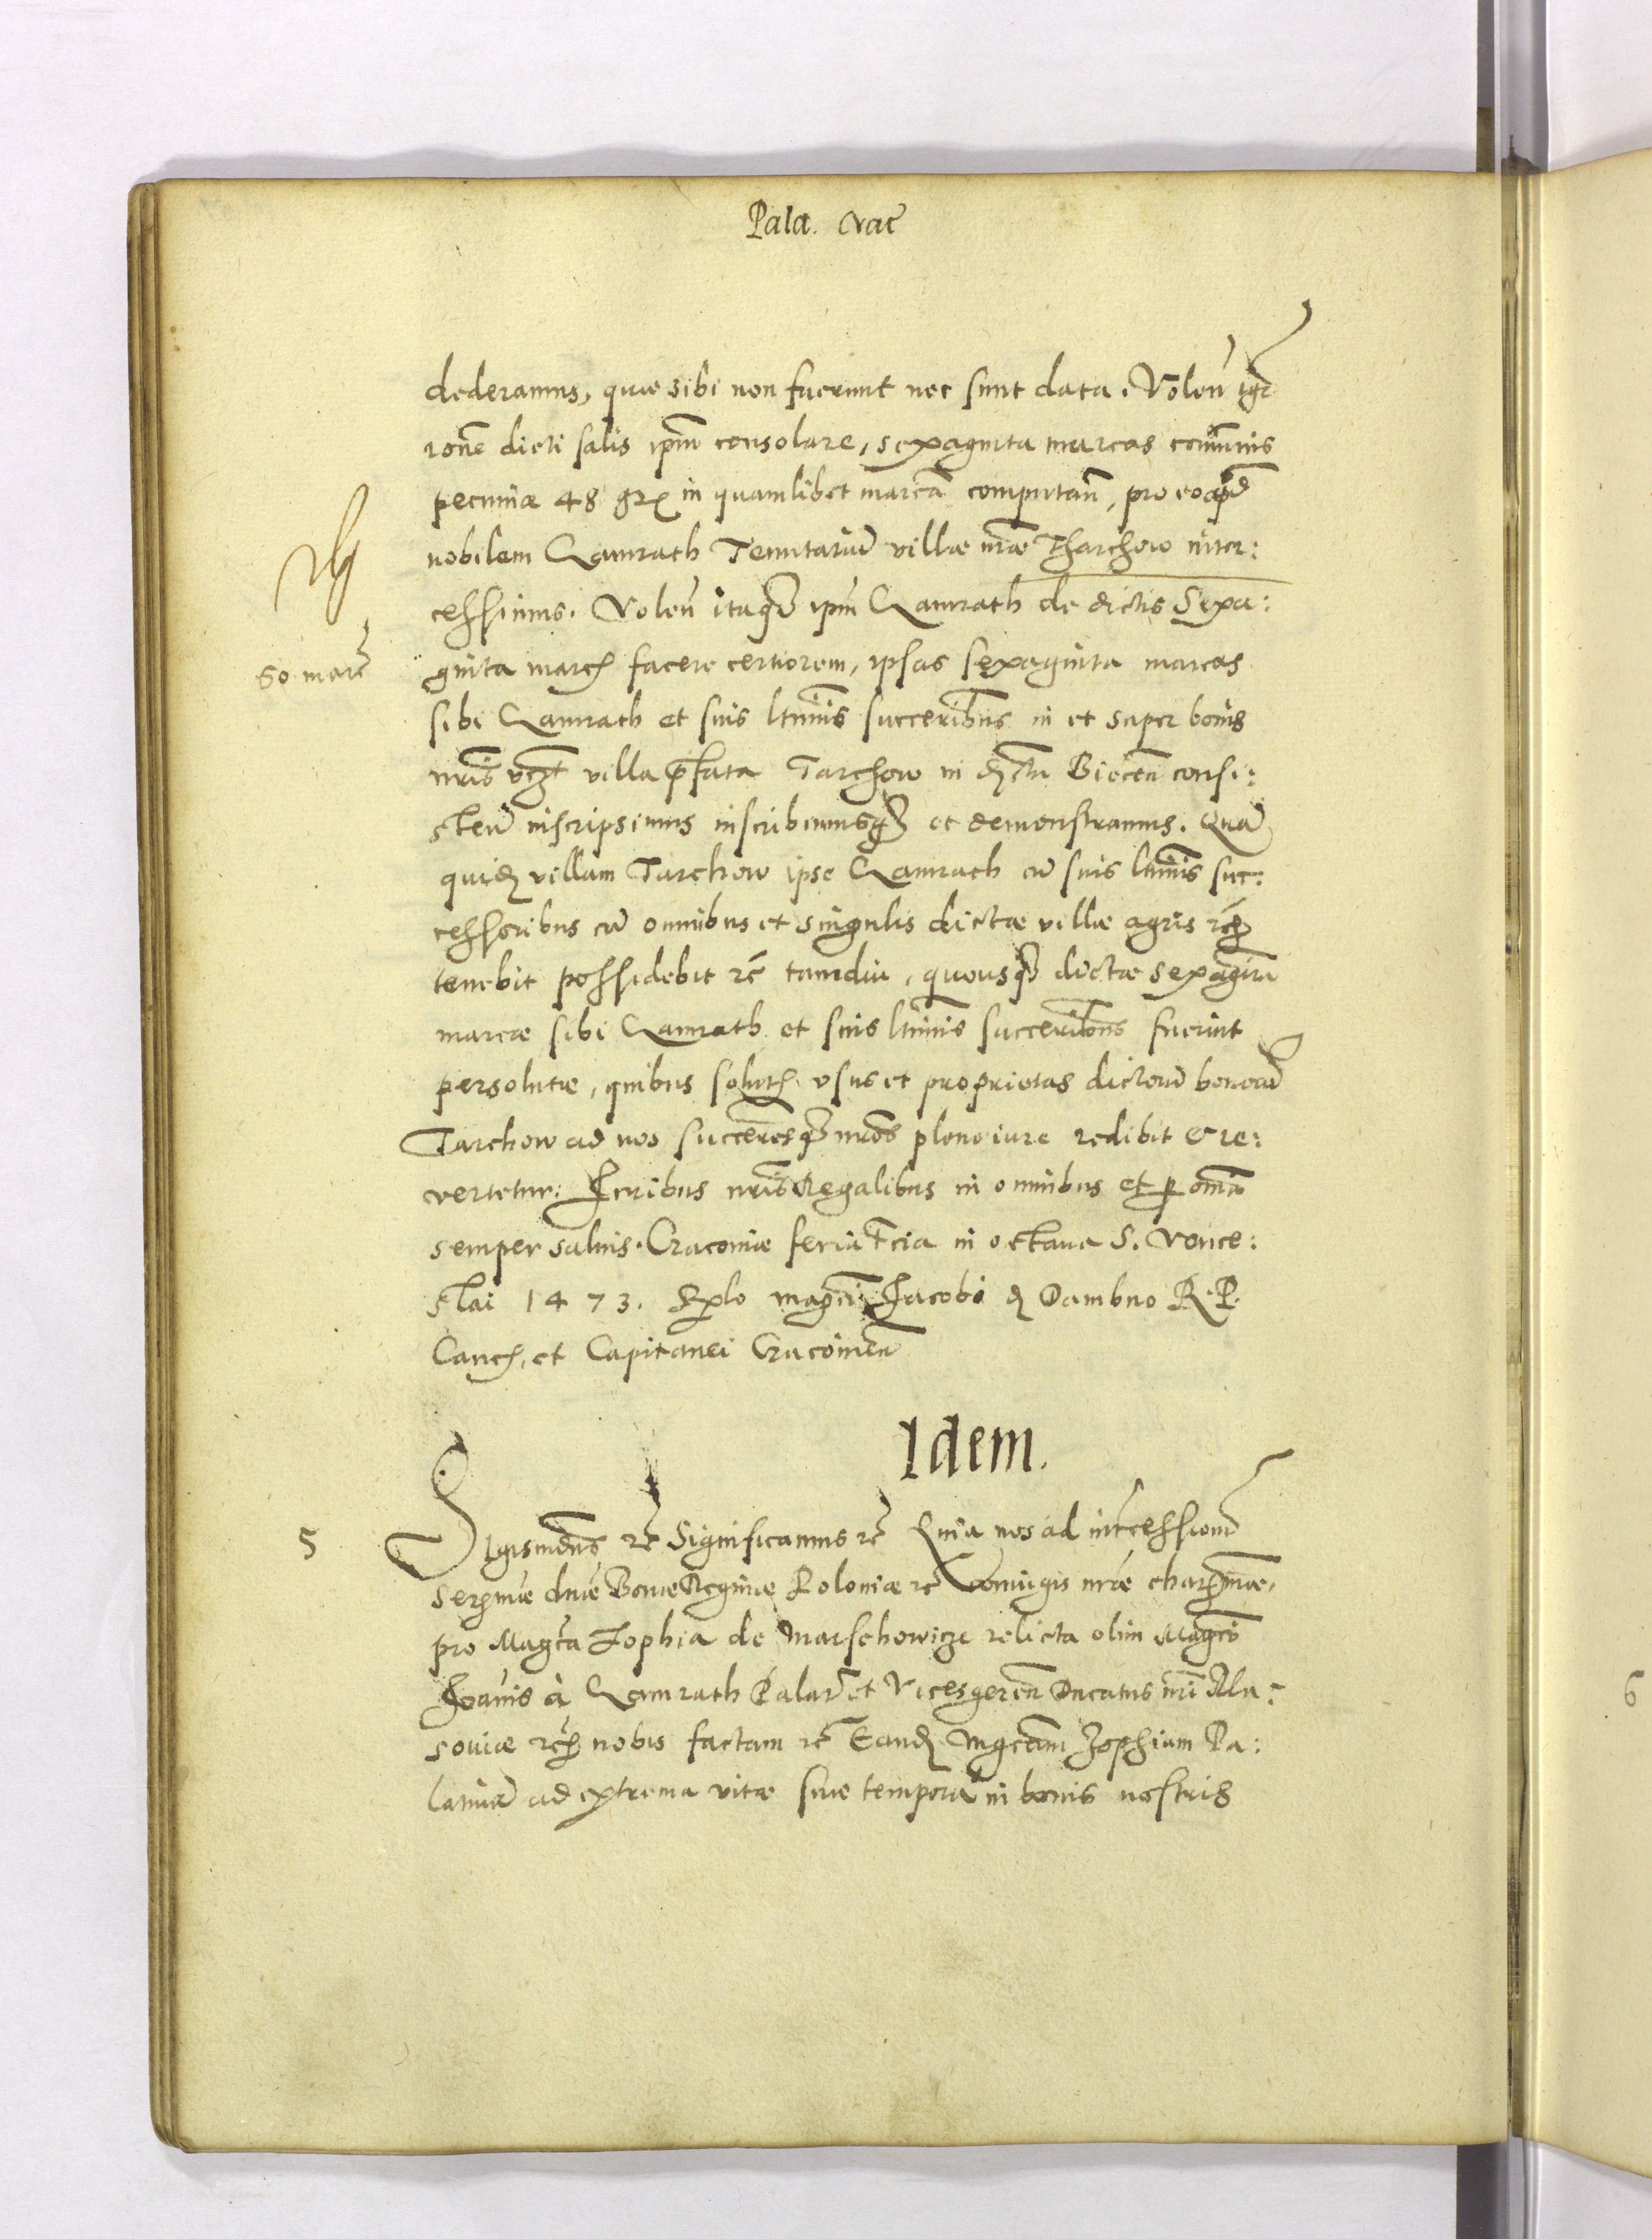 Pala. vac̄
dederamus, quæ sibi non fuerunt nec sunt data. Volen̄ igr̄
rōne dicti salis ipm̄ consolare, sexaginta marcas com̄unis
pecuniæ 48 gr in quamlibet marcā computan̄, pro eo apd̄
nobilem Qamrath Tenutariū villæ nr̄æ Tharchow inter:
cessimus. Volen̄ itaq ipm̄ Qamrath de dictis Sexa:
60 marc̄
ginta marc facere certiorem, ipsas sexaginta marcas
sibi Qamrath et suis ltimis̄ succerib̄us in et super bonis
nr̄is vczt villa p̄fata Tarchow in dctu Biecen̄ consi:
sten̄ inscripsimus inscribimusq et demonstramus. Quā
quid villam Tarchow ipse Qamrath cū suis ltimis̄ suc:
cessoribus cū omnibus et singulis dictæ villæ agris rc̄
tenebit possidebit rc̄ tamdiu, quousq dictæ sexagin̄ta
marcæ sibi Qamrath et suis ltimis̄ succerib̄us fuerint
persolutæ, quibus solut vsus et proprietas dictorū bonorū
Tarchow ad nos succeresq nr̄os pleno iure redibit & re:
vertetur: Iuribus nr̄is Regalibus in omnibus et p om̄ia
semper saluis. Cracoviæ feria t̄cia in octava S. Vence:
slai 1473. Rlo magci Iacobi d Dambno R. P.
Canc, et Capitanei Cracovien̄
Idem.
5
Sigismūdus rc̄ Significamus rc̄ Quia nos ad int̄cessionē
Sermæ dnæ Bonæ Reginæ Poloniæ rc̄ Coniugis nr̄æ charmæ,
pro Magca Zophia de Marschowicze relicta olim Magci
Ioānis à Qamrath Palat̄ et Vicesgeren̄ Ducatus nr̄i Ma:
soviæ rc̄ nobis factam rc̄ Eand Mgcam Zophiam Pa:
latinā ad extrema vitæ suæ tempora in bonis nostris
6